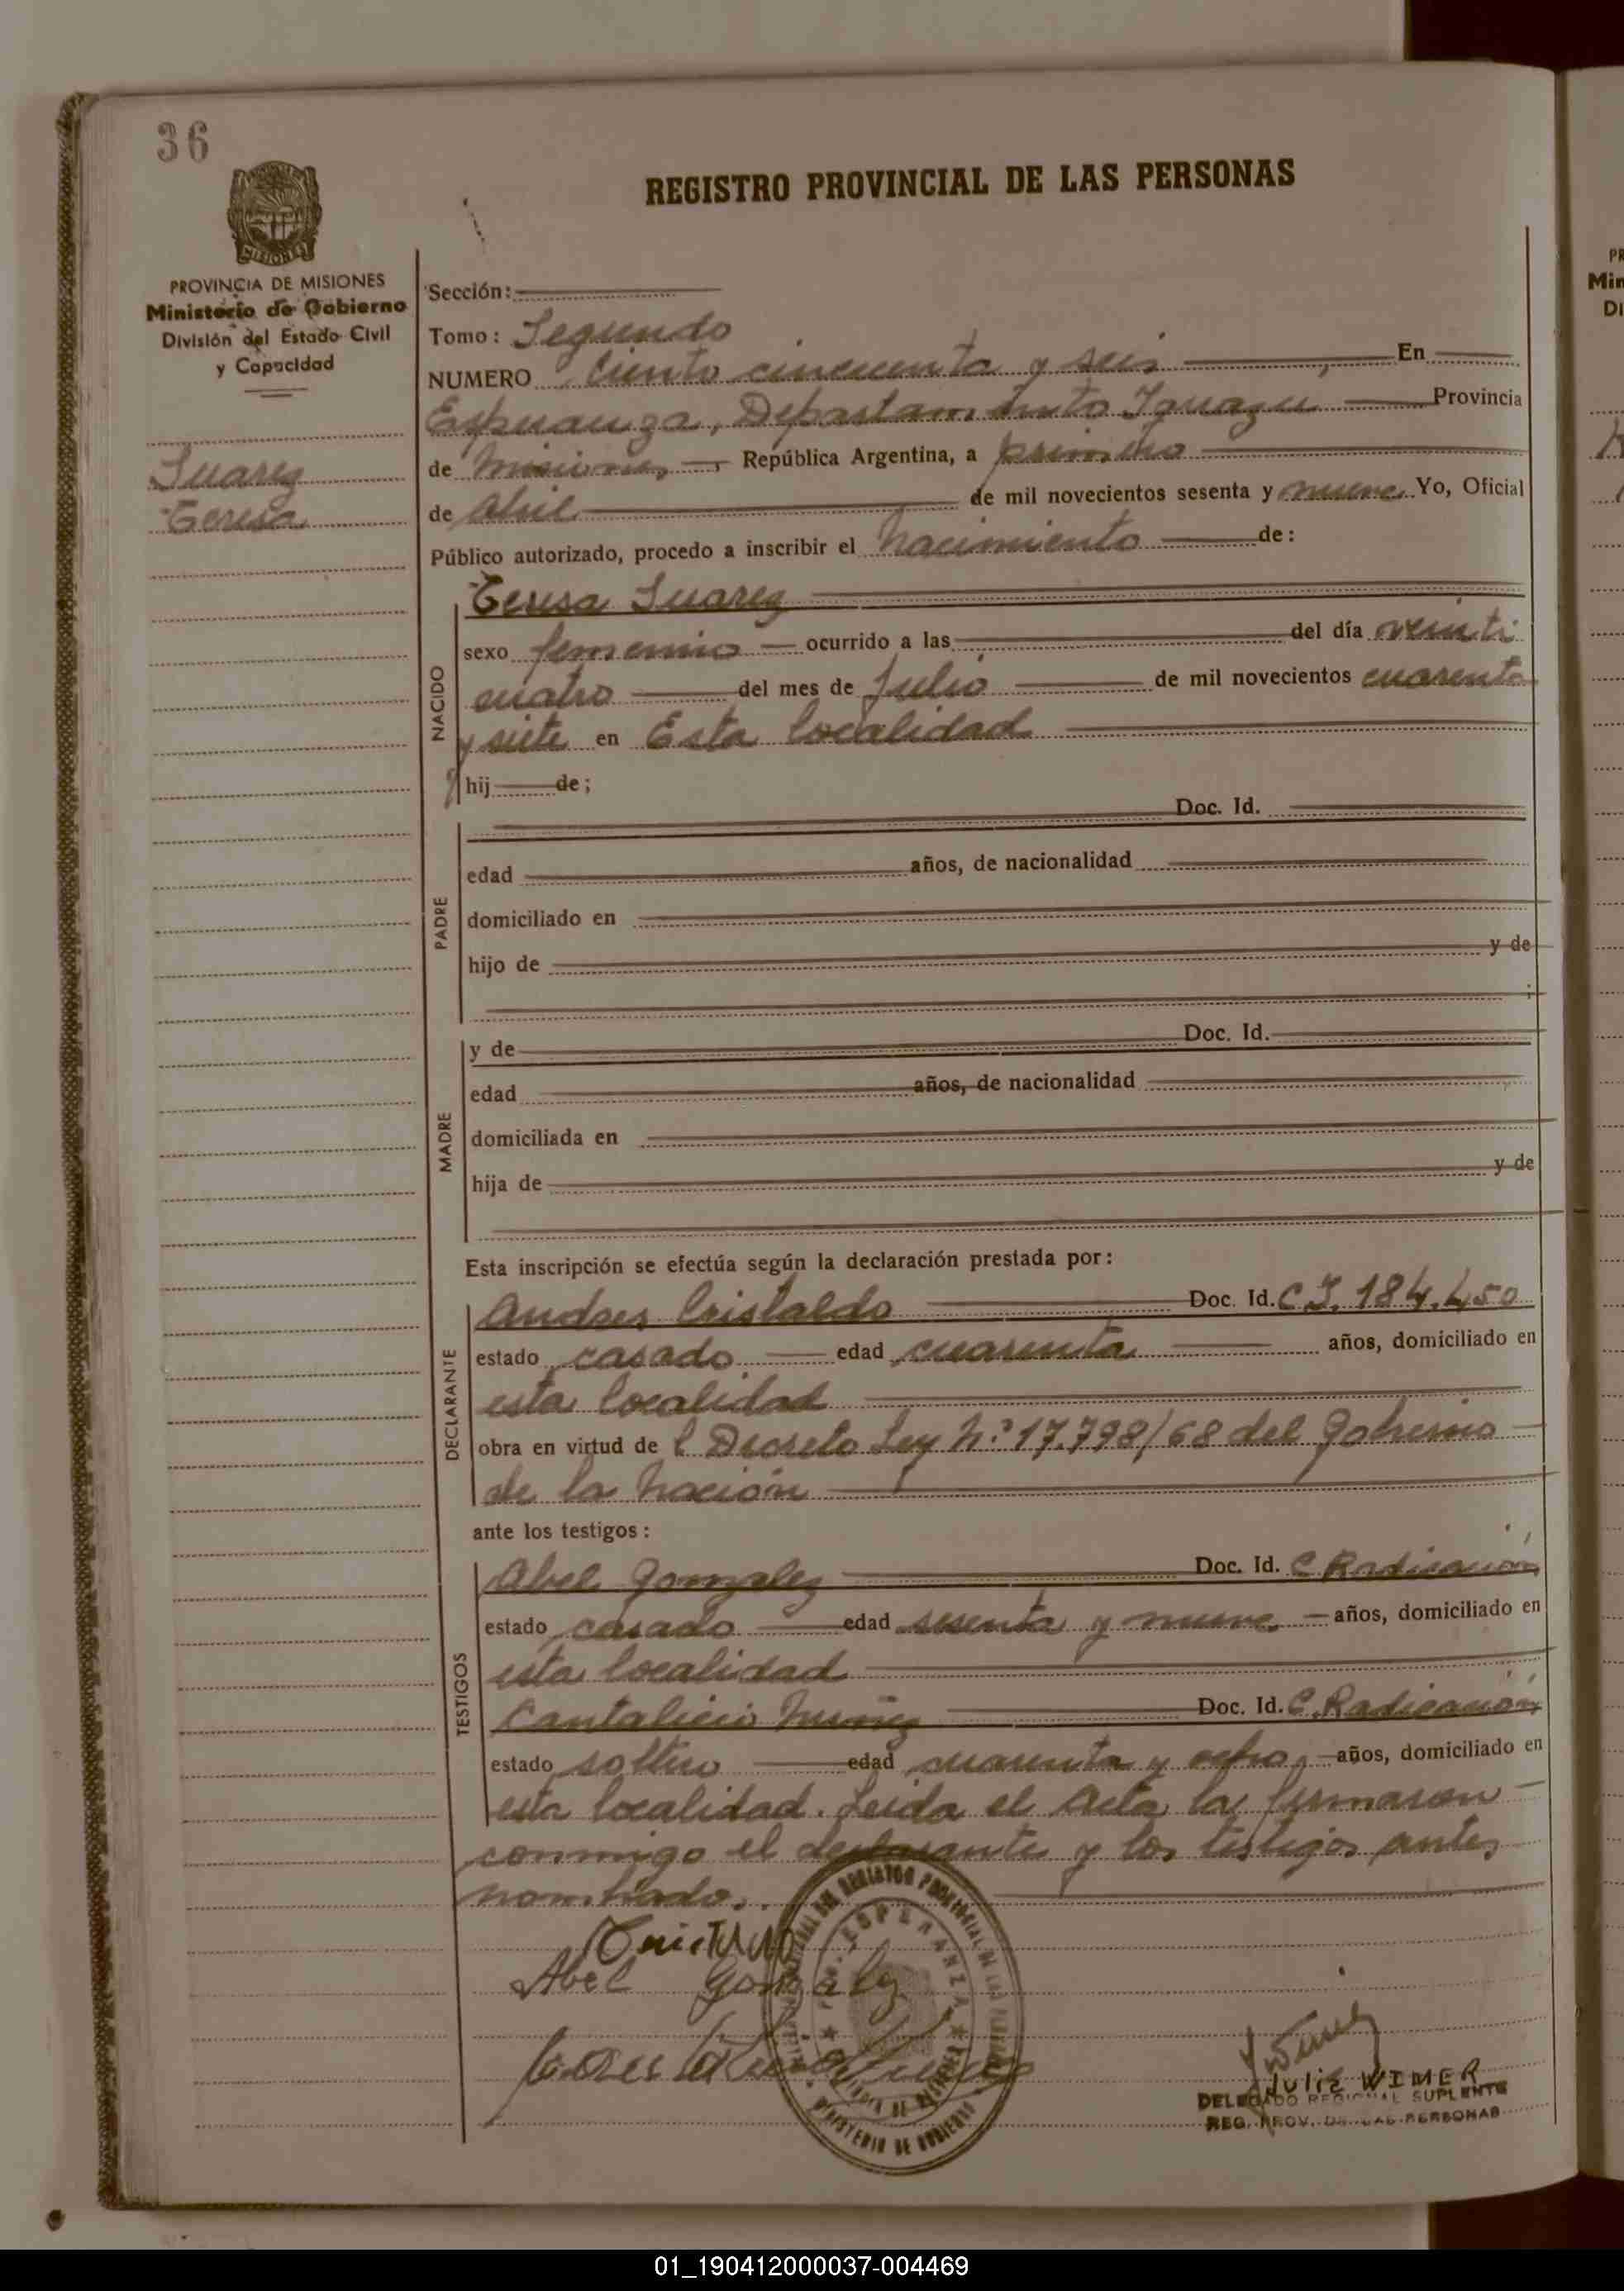 36
REGISTRO PROVINCIAL DE LAS PERSONAS
MISIONES
PROVINCIA DE MISIONES
Ministerio de Gobierno
División del Estado Civil
y Capacidad
Suarez
Teresa
Sección:
Tomo: Segundo
NUMERO Ciento cincuenta y seis, En
Esperanza, Departamento Iguazu Provincia
de Misiones, República Argentina, a primero
de Abril de mil novecientos sesenta y nueve Yo, Oficial
Público autorizado, procedo a inscribir el Nacimiento de:
NACIDO
Teresa Suarez
sexo femenino ocurrido a las del día veinti
cuatro del mes de Julio de mil novecientos cuarenta
y siete en Esta localidad
hij de;
PADRE
Doc. Id.
edad años, de nacionalidad
domiciliado en
hijo de y de
;
MADRE
y de Doc. Id.
edad años, de nacionalidad
domiciliada en
hija de y de
Esta inscripción se efectúa según la declaración prestada por:
DECLARANTE
Andres Cristaldo Doc. Id. C.I. 184.450
estado casado edad cuarenta años, domiciliado en
esta localidad
obra en virtud de l Decreto Ley N° 17.798/68 del Gobierno
de la Nación
ante los testigos:
TESTIGOS
Abel Gonzalez Doc. Id. C Radicación
estado casado edad sesenta y nueve años, domiciliado en
esta localidad
Cantalicio Nuñez Doc. Id. C. Radicación
estado soltero edad cuarenta y ocho, años, domiciliado en
esta localidad. Leida el Acta la firmaron
conmigo el declarante y los testigos antes
nombrado.
Abel Gonzalez
ESPERANZA
MINISTERIO DE GOBIERNO
Julio WIMER
DELEGADO REGIONAL SUPLENTE
REG. PROV. DE LAS PERSONAS
01_190412000037-004469